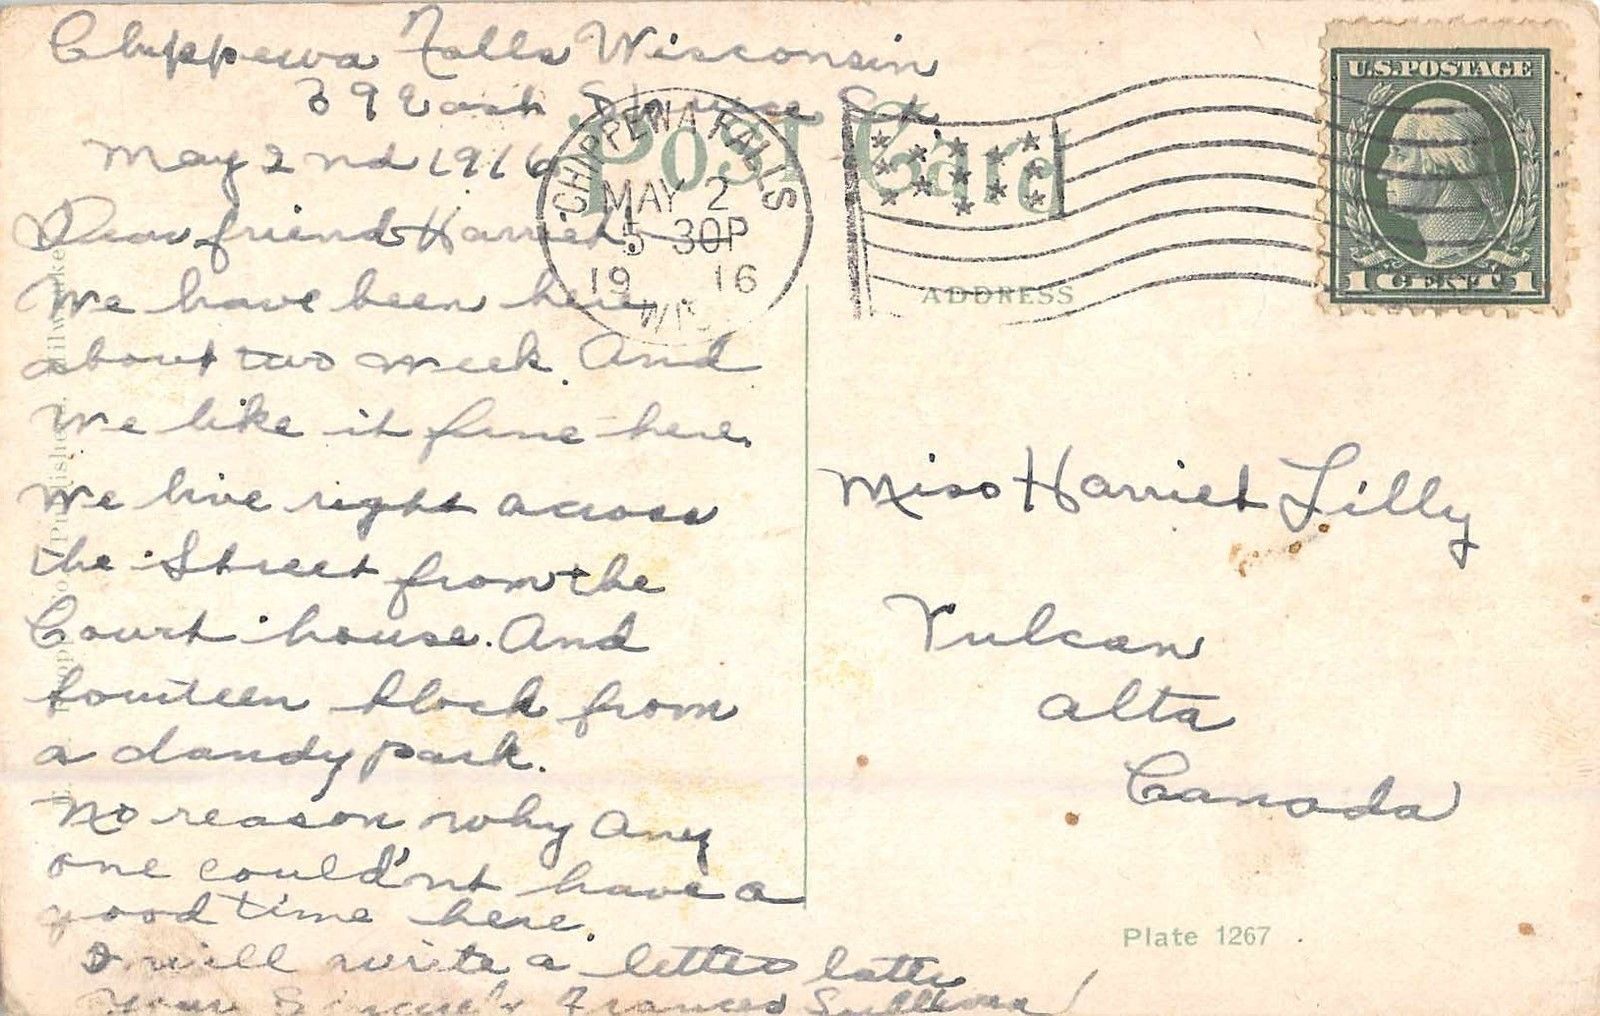 Chippewa Falls Wisconsin
39 East Spruce St.
May 2nd 1916
Dear friend Harriet
We have been here
about two week. And
We like it fine here.
We live right across
the Street from the
Court house. And
fourteen block from
a dandy park.
No reason why any
one could'nt have a
good time here.
I will write a letter latter
Your Frances Sullivan
Post Card
CHIPPEWA FALLS
MAY 2
5 30P
19 16
WIS.
ADDRESS
U.S. POSTAGE
1 CENT 1
Miss Harriet Lilly
Vulcan
Alta
Canada
Plate 1267
Published
Milwaukee